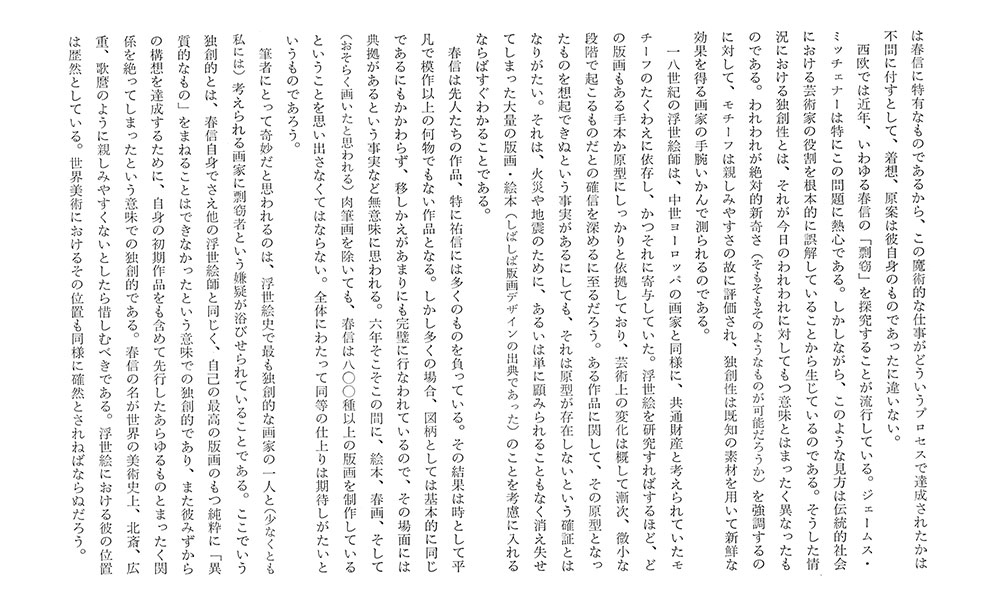 は春信に特有なものであるから、この魔術的な仕事がどういうプロセスで達成されたかは
不問に付すとして、着想、原案は彼自身のものであったに違いない。
西欧では近年、いわゆる春信の「剽窃」を探究することが流行している。ジェームス・
ミッチェナーは特にこの問題に熱心である。しかしながら、このような見方は伝統的社会
における芸術家の役割を根本的に誤解していることから生じているのである。そうした情
況における独創性とは、それが今日のわれわれに対してもつ意味とはまったく異なったも
のである。われわれが絶対的新奇さ（そもそもそのようなものが可能だろうか）を強調するの
に対して、モチーフは親しみやすさの故に評価され、独創性は既知の素材を用いて新鮮な
効果を得る画家の手腕いかんで測られるのである。
一八世紀の浮世絵師は、中世ヨーロッパの画家と同様に、共通財産と考えられていたモ
チーフのたくわえに依存し、かつそれに寄与していた。浮世絵を研究すればするほど、ど
の版画もある手本か原型にしっかりと依拠しており、芸術上の変化は概して漸次、微小な
段階で起こるものだとの確信を深めるに至るだろう。ある作品に関して、その原型となっ
たものを想起できぬという事実があるにしても、それは原型が存在しないという確証とは
なりがたい。それは、火災や地震のために、あるいは単に顧みられることもなく消え失せ
てしまった大量の版画・絵本（しばしば版画デザインの出典であった）のことを考慮に入れる
ならばすぐわかることである。
春信は先人たちの作品、特に祐信には多くのものを負っている。その結果は時として平
凡で模作以上の何物でもない作品となる。しかし多くの場合、図柄としては基本的に同じ
であるにもかかわらず、移しかえがあまりにも完璧に行なわれているので、その場面には
典拠があるという事実など無意味に思われる。六年そこそこの間に、絵本、春画、そして
（おそらく画いたと思われる）肉筆画を除いても、春信は八〇〇種以上の版画を制作している
ということを思い出さなくてはならない。全体にわたって同等の仕上りは期待しがたいと
いうものであろう。
筆者にとって奇妙だと思われるのは、浮世絵史で最も独創的な画家の一人と（少なくとも
私には）考えられる画家に剽窃者という嫌疑が浴びせられていることである。ここでいう
独創的とは、春信自身でさえ他の浮世絵師と同じく、自己の最高の版画のもつ純粋に「異
質的なもの」をまねることはできなかったという意味での独創的であり、また彼みずから
の構想を達成するために、自身の初期作品をも含めて先行したあらゆるものとまったく関
係を絶ってしまったという意味での独創的である。春信の名が世界の美術史上、北斎、広
重、歌麿のように親しみやすくないとしたら惜しむべきである。浮世絵における彼の位置
は歴然としている。世界美術におけるその位置も同様に確然とされねばならぬだろう。